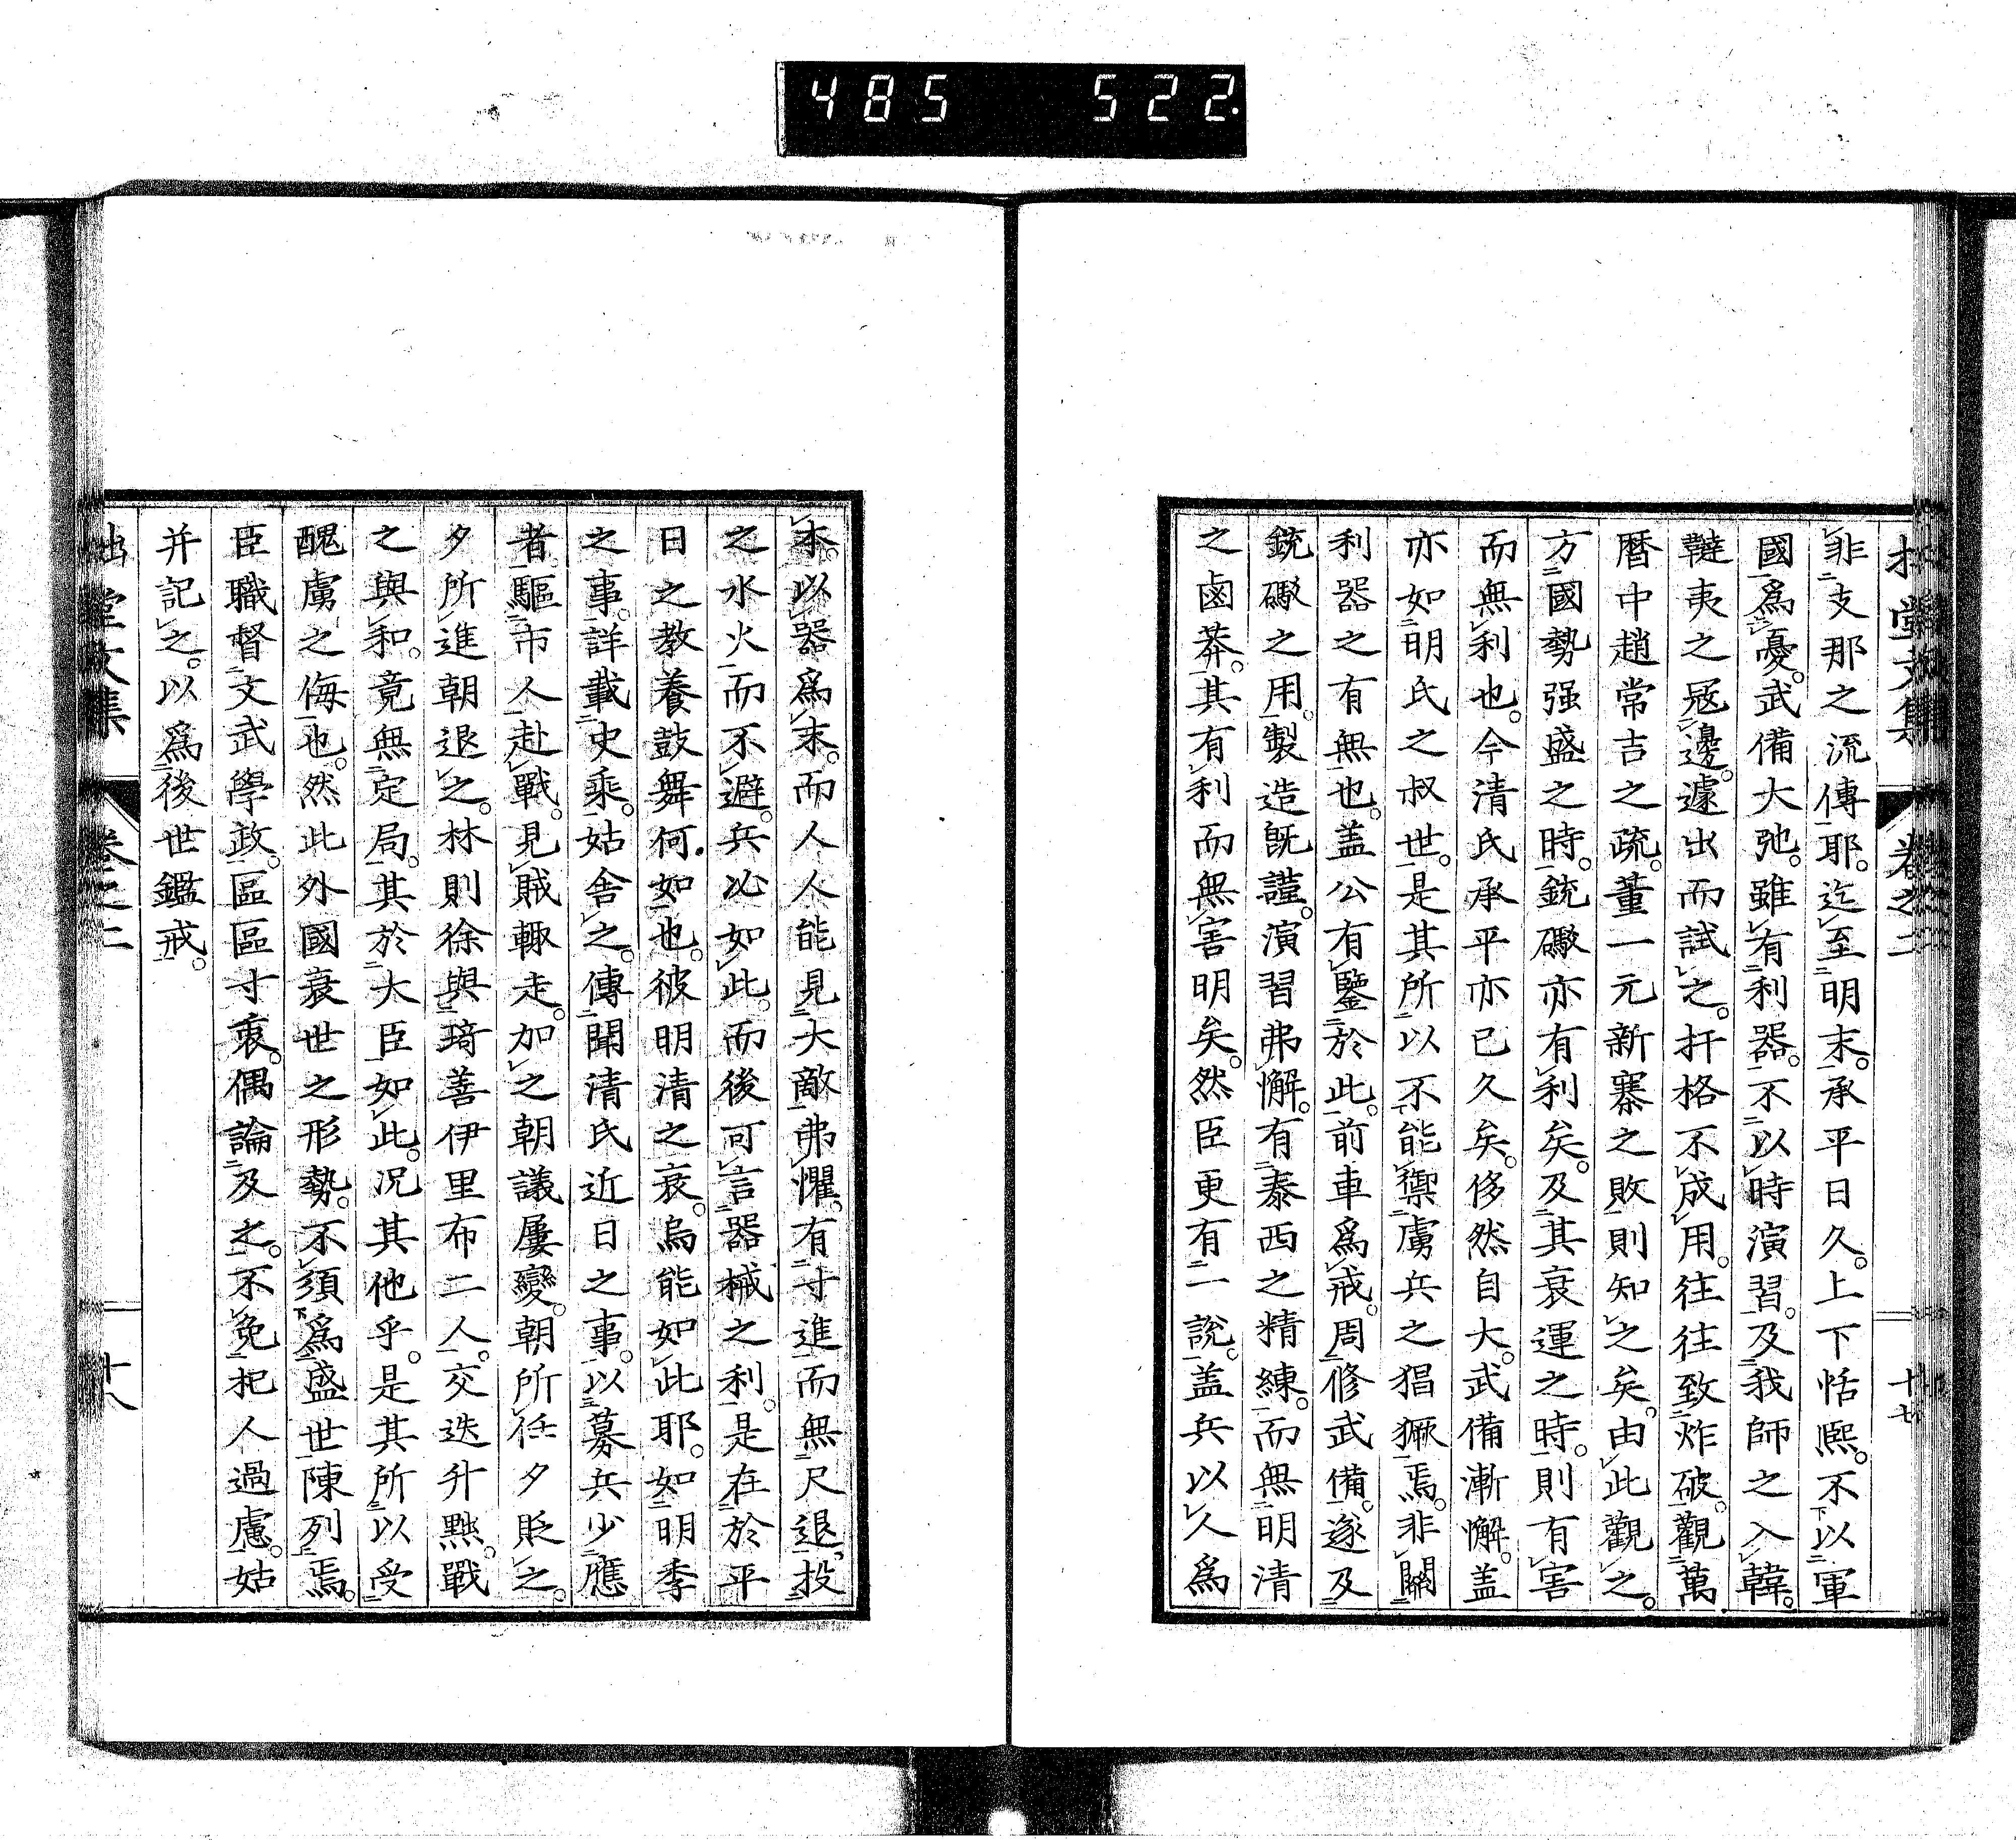 485 522.
拙堂文集 卷之二 十七
非支那之流傳耶。迄至明末。承平日久。上下恬熈。不以軍
國爲憂。武備大弛。雖有利器。不以時演習。及我師之入韓。
韃夷之冦邊。遽出而試之。扞格不成用。往往致炸破。觀萬
暦中趙常吉之疏。董一元新寨之敗。則知之矣。由此觀之。
方國勢强盛之時。銃礮亦有利矣。及其衰運之時。則有害
而無利也。今清氏承平亦已久矣。侈然自大。武備漸懈。盖
亦如明氏之叔世。是其所以不能禦虜兵之猖獗焉。非關
利器之有無也。盖公有鑒於此。前車爲戒。周修武備。遂及
銃礮之用。製造旣謹。演習弗懈。有泰西之精練。而無明清
之鹵莽。其有利而無害明矣。然臣更有一說。盖兵以人爲
本。以器爲末。而人人能見大敵弗懼。有寸進而無尺退。投
之水火而不避。兵必如此。而後可言器械之利。是在於平
日之教養鼓舞何如也。彼明清之衰。烏能如此耶。如明季
之事。詳載史乘。姑舍之。傳聞清氏近日之事。以募兵少應
者。驅市人赴戰。見賊輙走。加之朝議屢變。朝所任夕貶之。
夕所進朝退之。林則徐與琦善伊里布二人。交迭升黜。戰
之與和。竟無定局。其於大臣如此。况其他乎。是其所以受
醜虜之侮也。然此外國衰世之形勢。不須爲盛世陳列焉。
臣職督文武學政。區區寸衷。偶論及之。不免杞人過慮。姑
并記之。以爲後世鑑戒。
拙堂文集 卷之二 十八